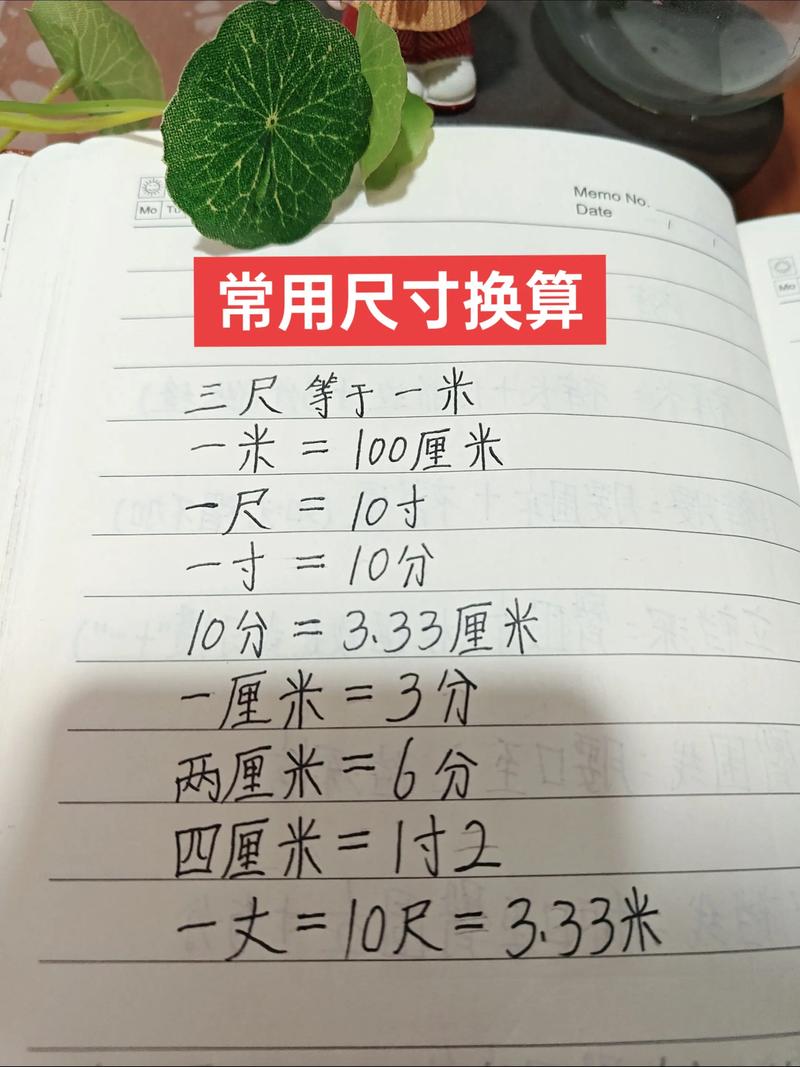 Memo No.
Mo Tu
Date / /
Mo
常用尺寸换算
三尺等于一米
一米 = 100厘米
一尺 = 10寸
一寸 = 10分
10分 = 3.33厘米
一厘米 = 3分
两厘米 = 6分
四厘米 = 1寸2
一丈 = 10尺 = 3.33米